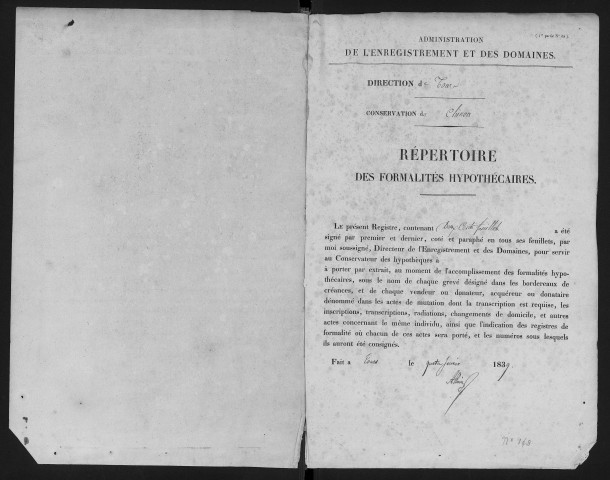 (1re partie N° 34)
ADMINISTRATION
DE L'ENREGISTREMENT ET DES DOMAINES.
DIRECTION de Tours
CONSERVATION de Chinon
RÉPERTOIRE
DES FORMALITÉS HYPOTHÉCAIRES.
LE présent Registre, contenant deux Cent feuillets a été
signé par premier et dernier, coté et paraphé en tous ses feuillets, par
moi soussigné, Directeur de l'Enregistrement et des Domaines, pour servir
au Conservateur des hypothèques à
à porter par extrait, au moment de l'accomplissement des formalités hypo-
thécaires, sous le nom de chaque grevé désigné dans les bordereaux de
créances, et de chaque vendeur ou donateur, acquéreur ou donataire
dénommé dans les actes de mutation dont la transcription est requise, les
inscriptions, transcriptions, radiations, changements de domicile, et autres
actes concernant le même individu, ainsi que l'indication des registres de
formalité où chacun de ces actes sera porté, et les numéros sous lesquels
ils auront été consignés.
Fait à Tours le quatre février 1839.
N° 368